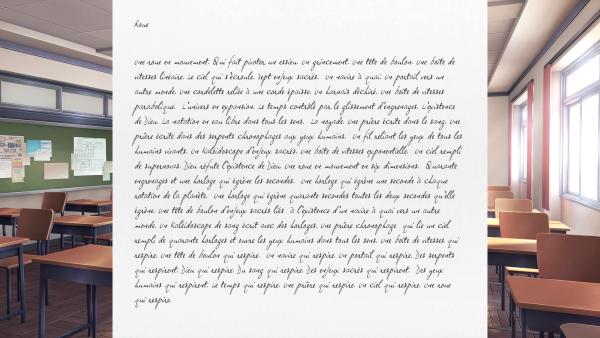 Roue
Une roue en mouvement. Qui fait pivoter un essieu. Un grincement. Une tête de boulon. Une boîte de
vitesses linéaire. Le ciel qui s'écroule. Sept enjeux sacrés. Un navire à quai. Un portail vers un
autre monde. Une cordelette reliée à une corde épaisse. Un harnais déchiré. Une boîte de vitesses
parabolique. L'univers en expansion. Le temps contrôlé par le glissement d'engrenages. L'existence
de Dieu. La natation en eau libre dans tous les sens. La noyade. Une prière écrite dans le sang. Une
prière écrite dans des serpents chronophages aux yeux humains. Un fil reliant les yeux de tous les
humains vivants. Un kaléidoscope d'enjeux sacrés. Une boîte de vitesses exponentielle. Un ciel rempli
de supernovas. Dieu réfute l'existence de Dieu. Une roue en mouvement en six dimensions. Quarante
engrenages et une horloge qui égrène les secondes. Une horloge qui égrène une seconde à chaque
rotation de la planète. Une horloge qui égrène quarante secondes toutes les deux secondes qu'elle
égrène. Une tête de boulon d'enjeux sacrés liés à l'existence d'un navire à quai vers un autre
monde. Un kaléidoscope de sang écrit avec des horloges. Une prière chronophage qui lie un ciel
rempli de quarante horloges et ouvre les yeux humains dans tous les sens. Une boîte de vitesses qui
respire. Une tête de boulon qui respire. Un navire qui respire. Un portail qui respire. Des serpents
qui respirent. Dieu qui respire. Du sang qui respire. Des enjeux sacrés qui respirent. Des yeux
humains qui respirent. Le temps qui respire. Une prière qui respire. Un ciel qui respire. Une roue
qui respire.